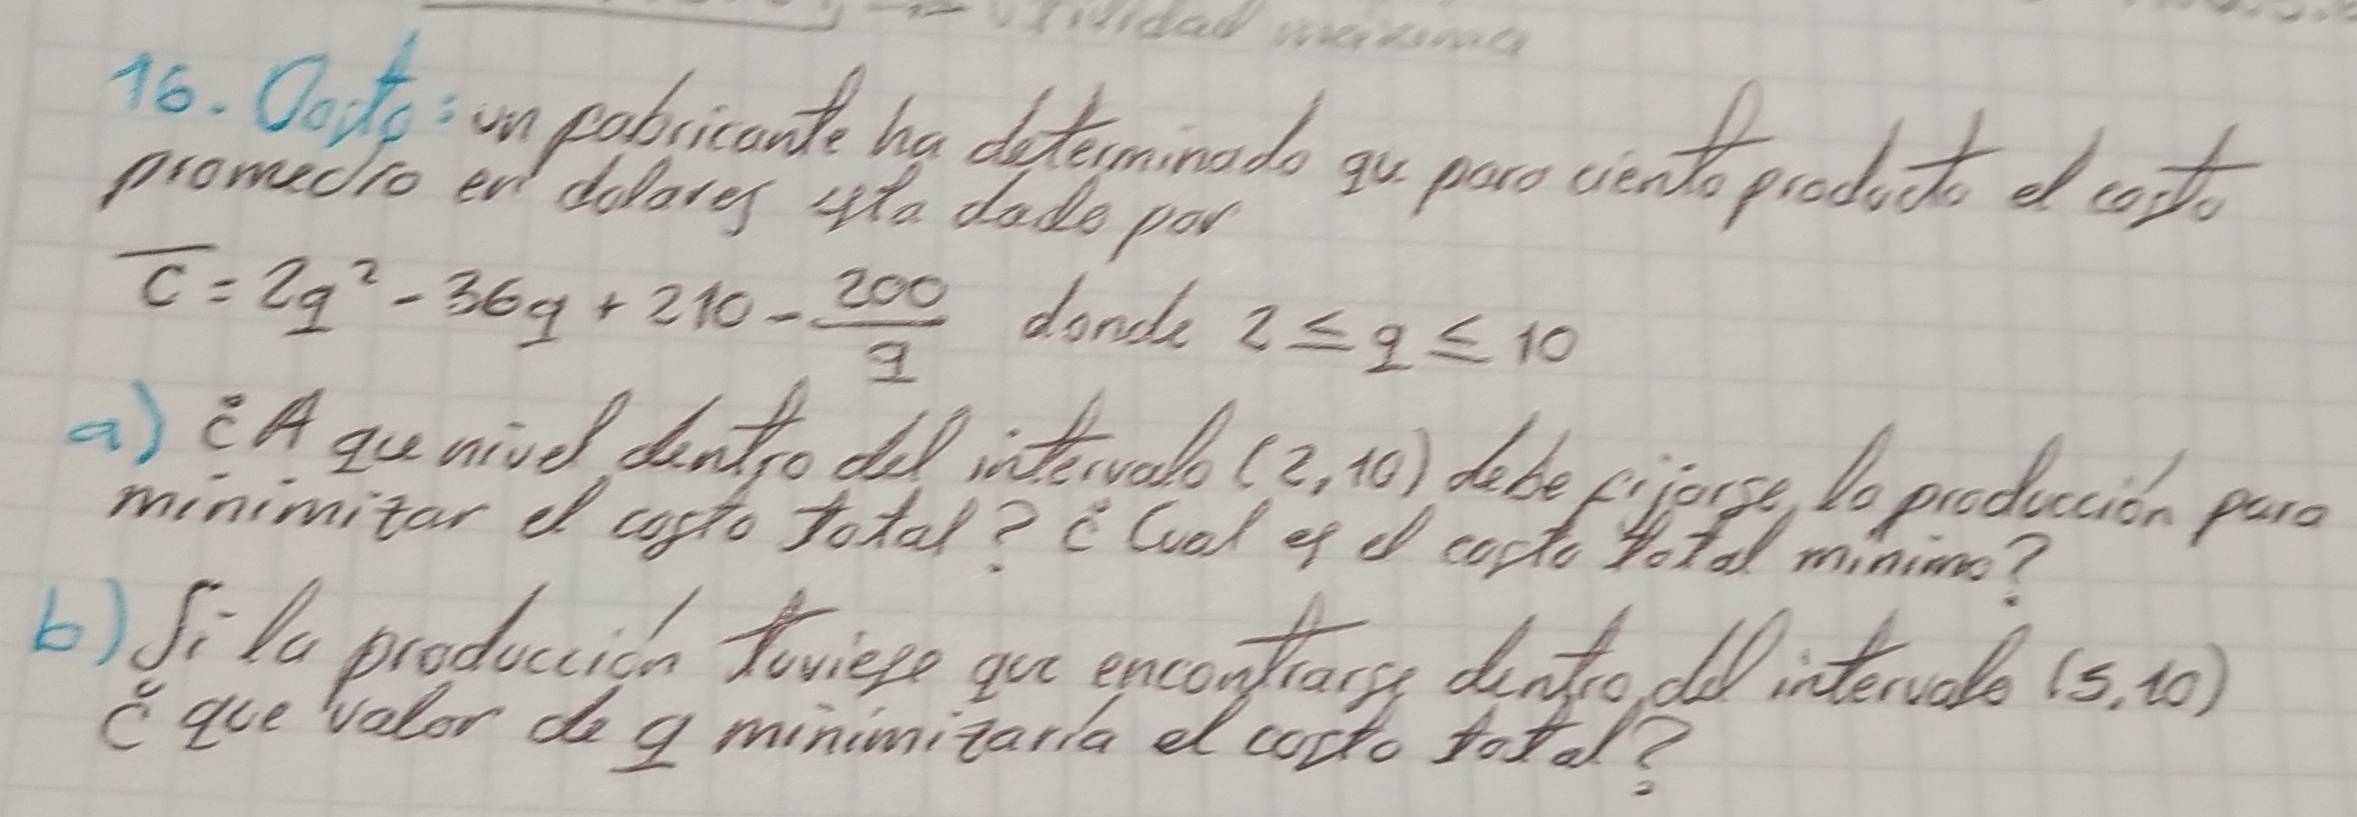 Utilidad maxima
16. Costo: un fabricante ha determinado qu para cierto producto el costo
promedio en dolares esta dado por
c̅ = 2q² - 36q + 210 - 200/q donde 2 ≤ q ≤ 10
a) ¿A que nivel dentro del intervalo (2,10) debe fijarse la producción para
minimizar el costo total? ¿Cual es el costo total minimo?
b) Si la producción tuviese que encontrarse dentro del intervalo (5,10)
¿que valor de q minimizaría el costo total?